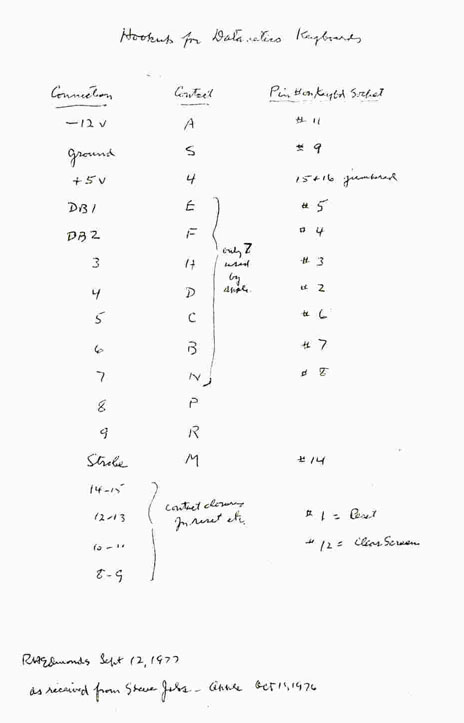 Hookups for Datanetics Keyboards
Connection Contact Pin # on Keybd Socket
-12 v A # 11
Ground S # 9
+5 v 4 15+16 jumpered
DB1 E # 5
DB2 F # 4
3 H # 3
4 D # 2
5 C # 6
6 B # 7
7 N # 8
only 7
used
by
apple
8 P
9 R
Strobe M # 14
14-15
12-13
10-11
8-9
contact closures
for reset etc.
# 1 = Reset
# 12 = Clear Screen
Edmonds Sept 12, 1977
as received from Steve Jobs - Apple Oct 1976